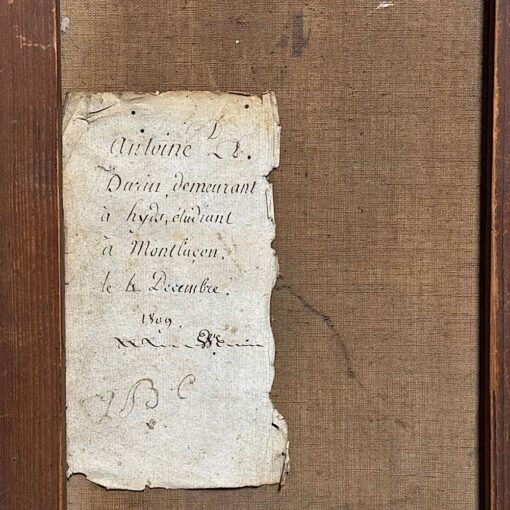 Antoine
Durin, demeurant
à hyds, étudiant
à Montluçon.
le 4 Decembre.
1809.